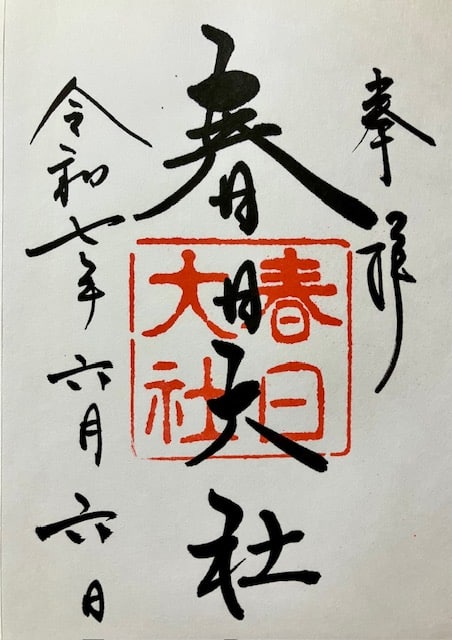 奉拝
春日大社
春日
大社
令和七年六月六日